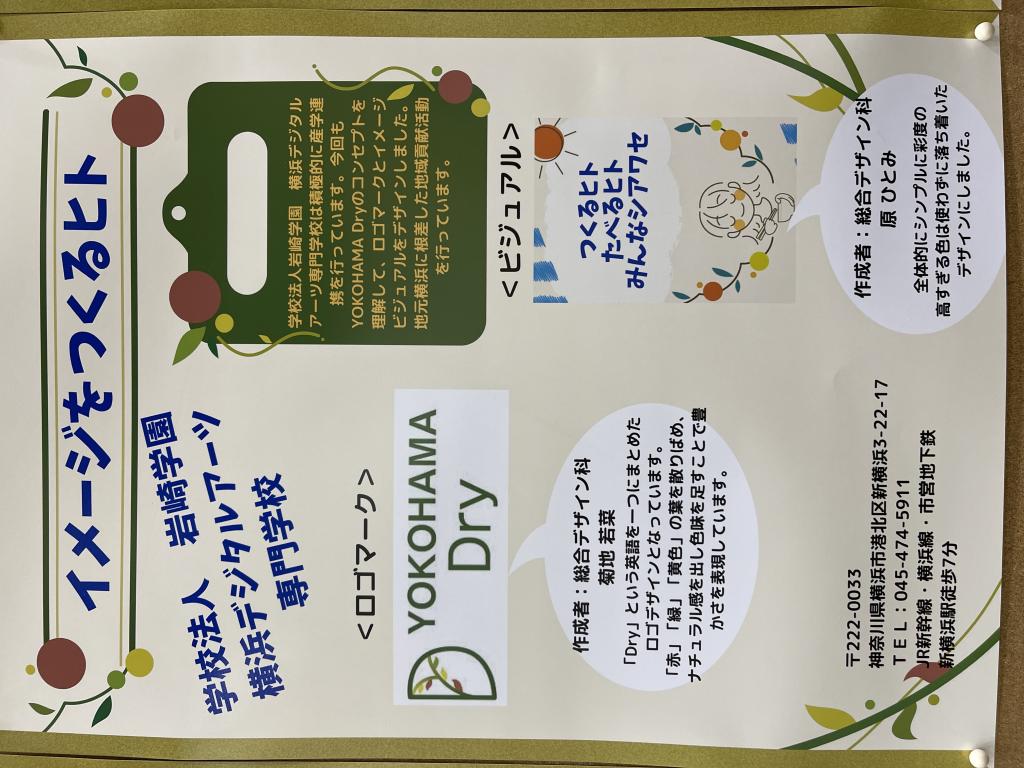 イメージをつくるヒト
学校法人　岩崎学園
横浜デジタルアーツ
専門学校
学校法人岩崎学園　横浜デジタル
アーツ専門学校は積極的に産学連
携を行っています。今回も
YOKOHAMA Dryのコンセプトを
理解して、ロゴマークとイメージ
ビジュアルをデザインしました。
地元横浜に根差した地域貢献活動
を行っています。
＜ロゴマーク＞
YOKOHAMA
Dry
作成者：総合デザイン科
菊地 若菜
「Dry」という英語を一つにまとめた
ロゴデザインとなっています。
「赤」「緑」「黄色」の葉を散りばめ、
ナチュラル感を出し色味を足すことで豊
かさを表現しています。
＜ビジュアル＞
つくるヒト
たべるヒト
みんなシアワセ
作成者：総合デザイン科
原 ひとみ
全体的にシンプルに彩度の
高すぎる色は使わずに落ち着いた
デザインにしました。
〒222-0033
神奈川県横浜市港北区新横浜3-22-17
ＴＥＬ：045-474-5911
JR新幹線・横浜線・市営地下鉄
新横浜駅徒歩7分